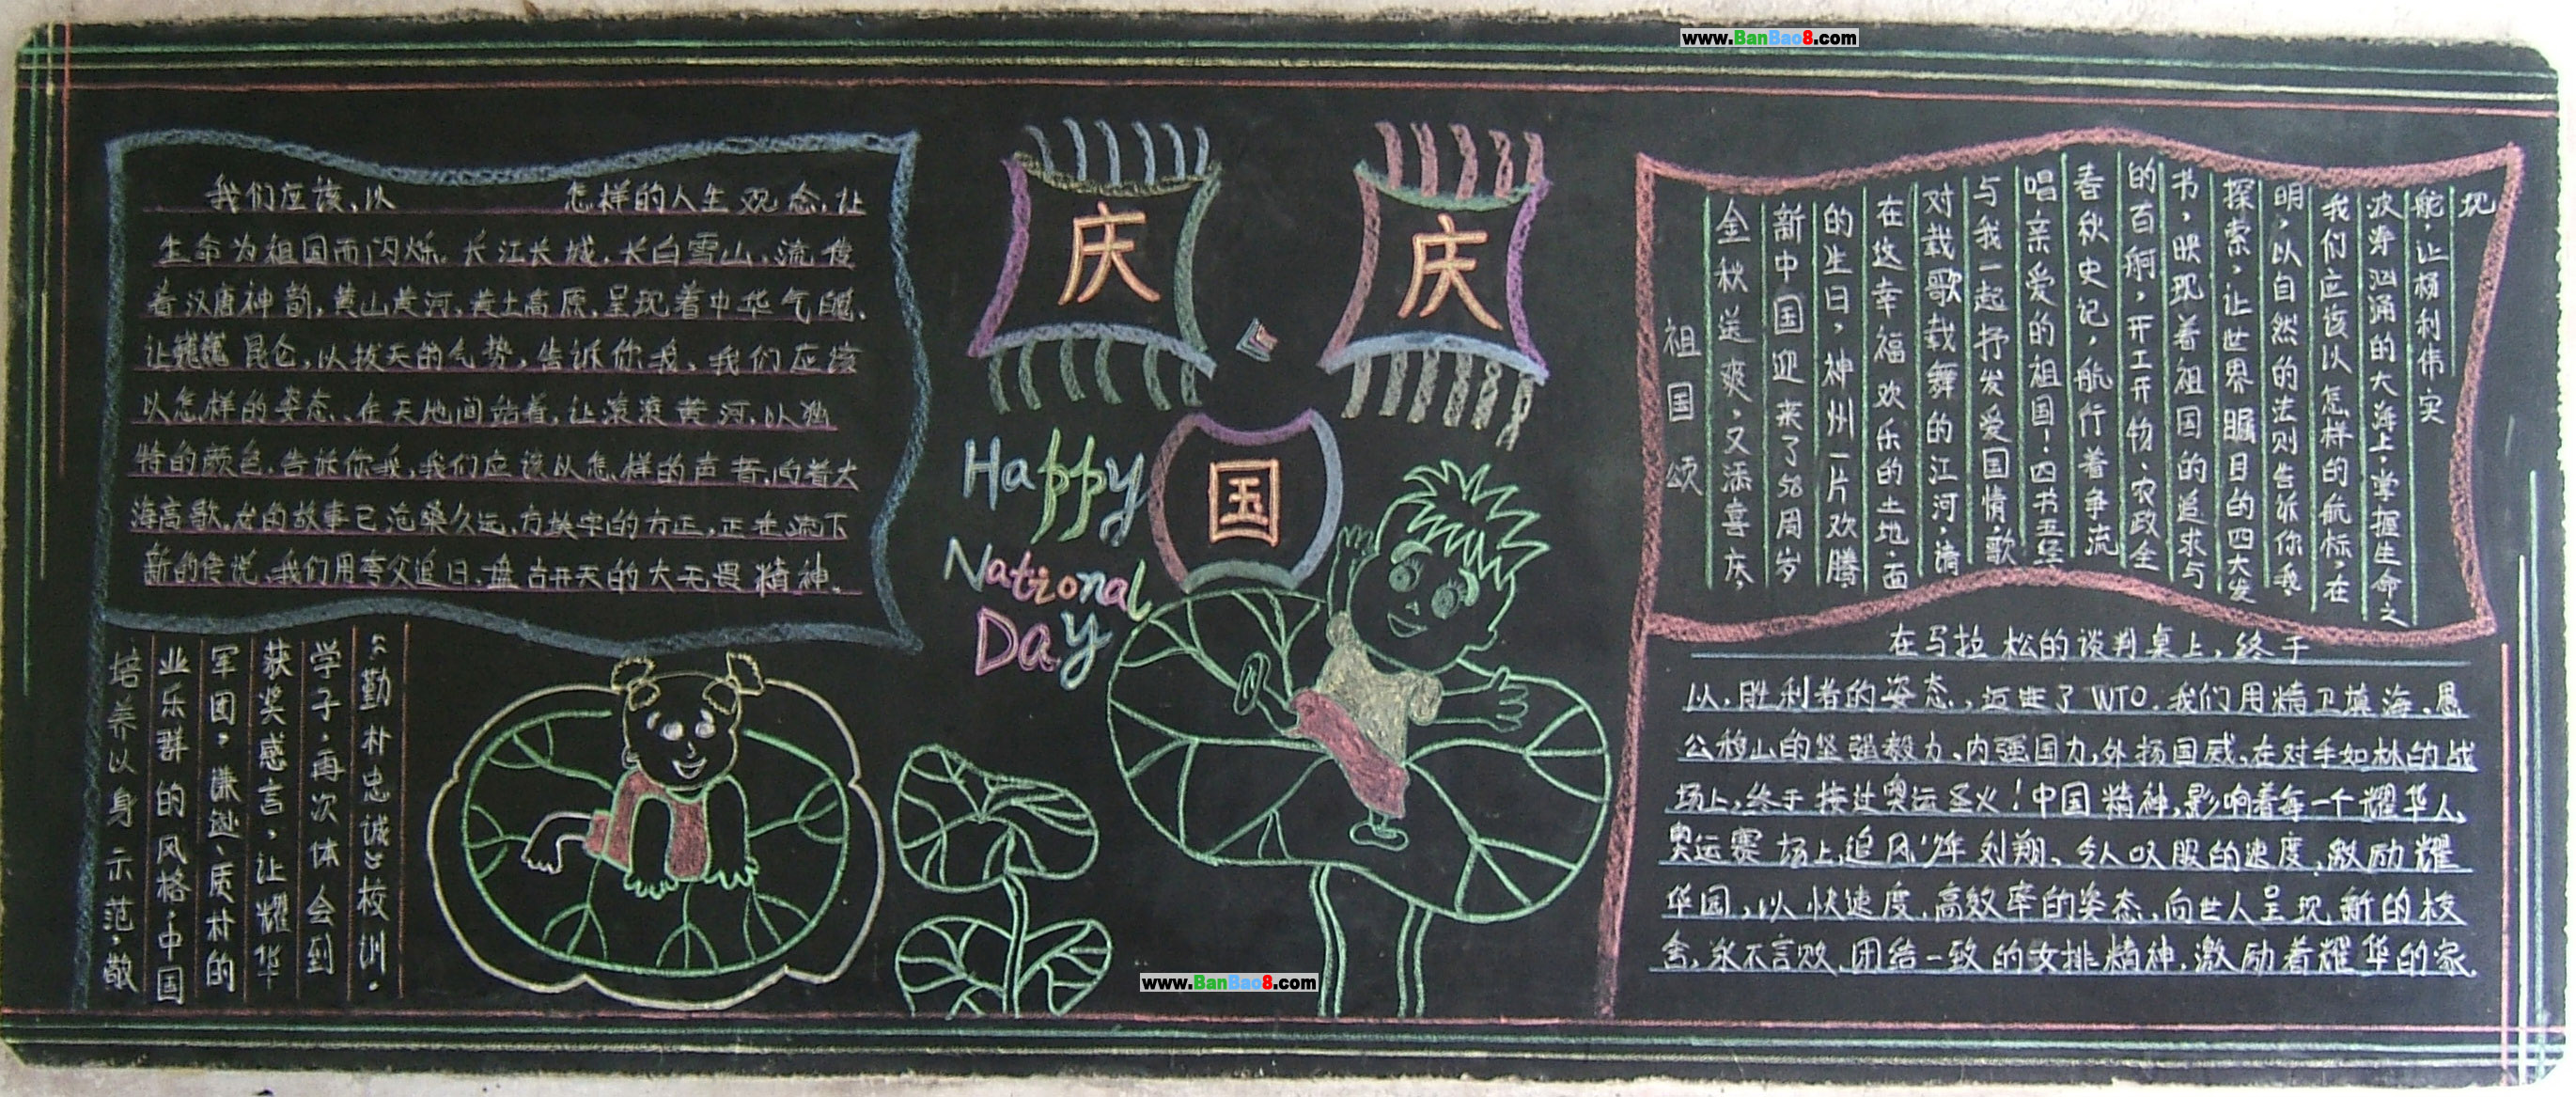 www.BanBao8.com
我们应该,以 怎样的人生观念,让
生命为祖国而闪烁.长江长城,长白雪山,流传
着汉唐神韵,黄山黄河,黄土高原,呈现着中华气魄,
让巍巍昆仑,以拔天的气势,告诉你我,我们应该
以怎样的姿态、在天地间站着,让滚滚黄河,以独
特的颜色,告诉你我,我们应该以怎样的声音,向着大
海高歌,龙的故事已沧桑久远,方块字的方正,正在流下
新的传说,我们用夸父追日,盘古开天的大无畏精神.
庆
庆
国
Happy
National
Day
祖国颂
金秋送爽,又添喜庆,
新中国迎来了58周岁
的生日,神州一片欢腾
在这幸福欢乐的土地,面
对载歌载舞的江河,请
与我一起抒发爱国情,歌
唱亲爱的祖国!四书五经
春秋史记,航行着争流
的百舸,开工开物、农政全
书,映现着祖国的追求与
探索,让世界瞩目的四大发
明,以自然的法则告诉你我
我们应该以怎样的航标,在
波涛汹涌的大海上,掌握生命之
舵,让杨利伟实
现
在马拉松的谈判桌上,终于
以,胜利者的姿态,迈进了WTO.我们用精卫填海、愚
公移山的坚强毅力,内强国力,外扬国威,在对手如林的战
场上,终于接过奥运圣火!中国精神,影响着每一个耀华人,
奥运赛场上,追风少年刘翔、令人叹服的速度,激励耀
华园,以快速度,高效率的姿态,向世人呈现新的校
舍,永不言败,团结一致的女排精神,激励着耀华的家.
"勤朴忠诚"校训.
学子,再次体会到
获奖感言,让耀华
军团,谦逊、质朴的
业乐群的风格,中国
培养以身示范,敬
www.BanBao8.com